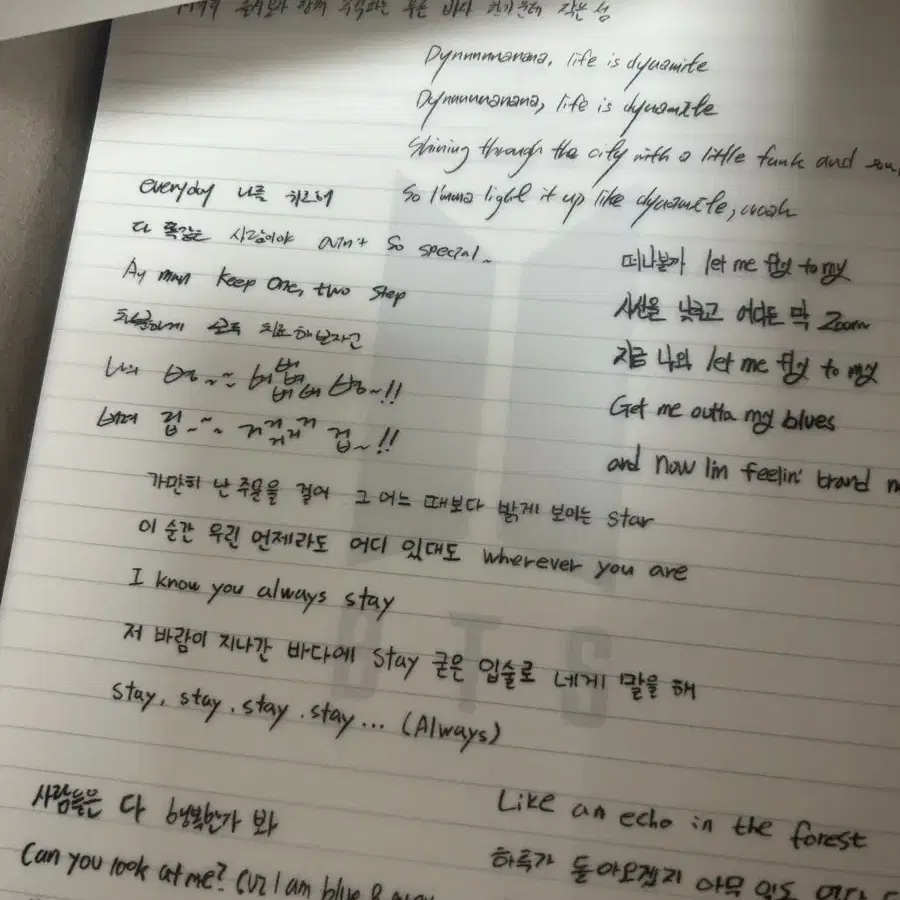 푸른 바다 한가운데 작은 섬
Dynnnnnanana, life is dynamite
Dynnnnnanana, life is dynamite
Shining through the city with a little funk and
So I'mma light it up like dynamite, woah
everyday 나를 위로해
다 똑같은 사람이야 ain't so special
Ay man keep one, two step
차분하게 모두 치료해보자고
나의 병~~ 버버벼버버 병~!!
버려 겁~~~ 거거거거거거 겁~!!
떠나볼까 let me fly to my
시선을 낮추고 어디든 막 zoom
지금 나와 let me fly to my
Get me outta my blues
and now I'm feelin' brand
가만히 난 주문을 걸어 그 어느 때보다 밝게 보이는 star
이 순간 우린 언제라도 어디 있대도 wherever you are
I know you always stay
저 바람이 지나간 바다에 stay 굳은 입술로 네게 말을 해
stay, stay, stay, stay... (Always)
BTS
사람들은 다 행복한가 봐
Can you look at me? Cuz I am blue &
Like an echo in the forest
하루가 돌아오겠지 아무 일도 없단